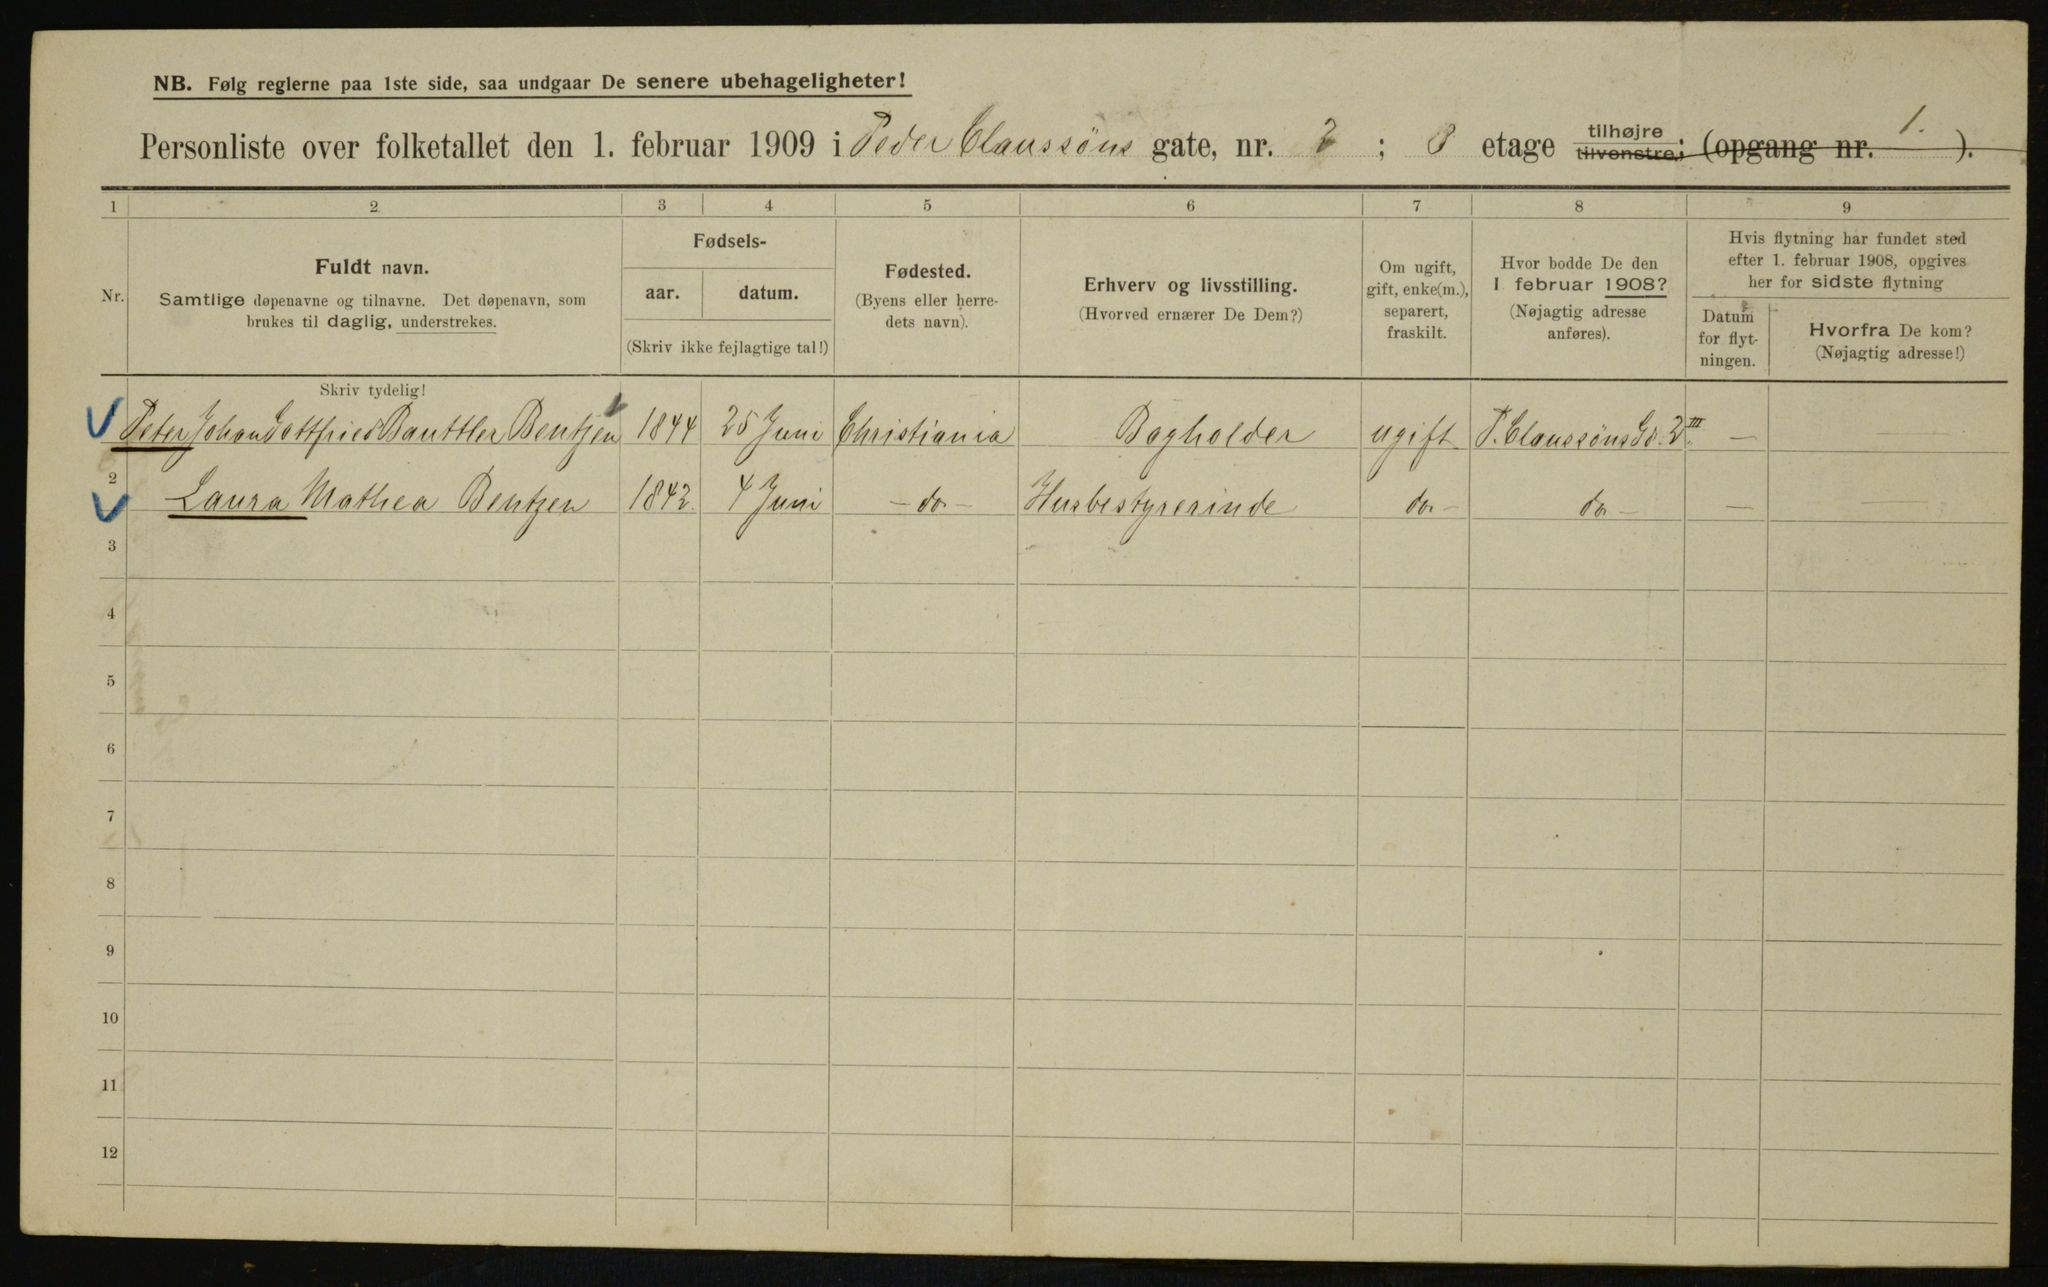 NB. Følg reglerne paa 1ste side, saa undgaar De senere ubehageligheter!
Personliste over folketallet den 1. februar 1909 i Peder Claussøns gate, nr. 2 ; 3 etage tilhøjre tilvenstre; (opgang nr. 1. ).
1 2 3 4 5 6 7 8 9
Nr.
Fuldt navn.
Samtlige døpenavne og tilnavne. Det døpenavn, som
brukes til daglig, understrekes.
Skriv tydelig!
Fødsels-
aar. datum.
(Skriv ikke fejlagtige tal!)
Fødested.
(Byens eller herre-
dets navn).
Erhverv og livsstilling.
(Hvorved ernærer De Dem?)
Om ugift,
gift, enke(m.),
separert,
fraskilt.
Hvor bodde De den
1 februar 1908?
(Nøjagtig adresse
anføres).
Hvis flytning har fundet sted
efter 1. februar 1908, opgives
her for sidste flytning
Datum
for flyt-
ningen.
Hvorfra De kom?
(Nøjagtig adresse!)
Peter Johan Gottfried Bauttler Bentzen 1844 25 Juni Christiania Bogholder ugift P. Claussøns Gd. 2 III —
2 Laura Mathea Bentzen 1842. 4 Juni – do – Husbestyrerinde do – do – —
3
4
5
6
7
8
9
10
11
12